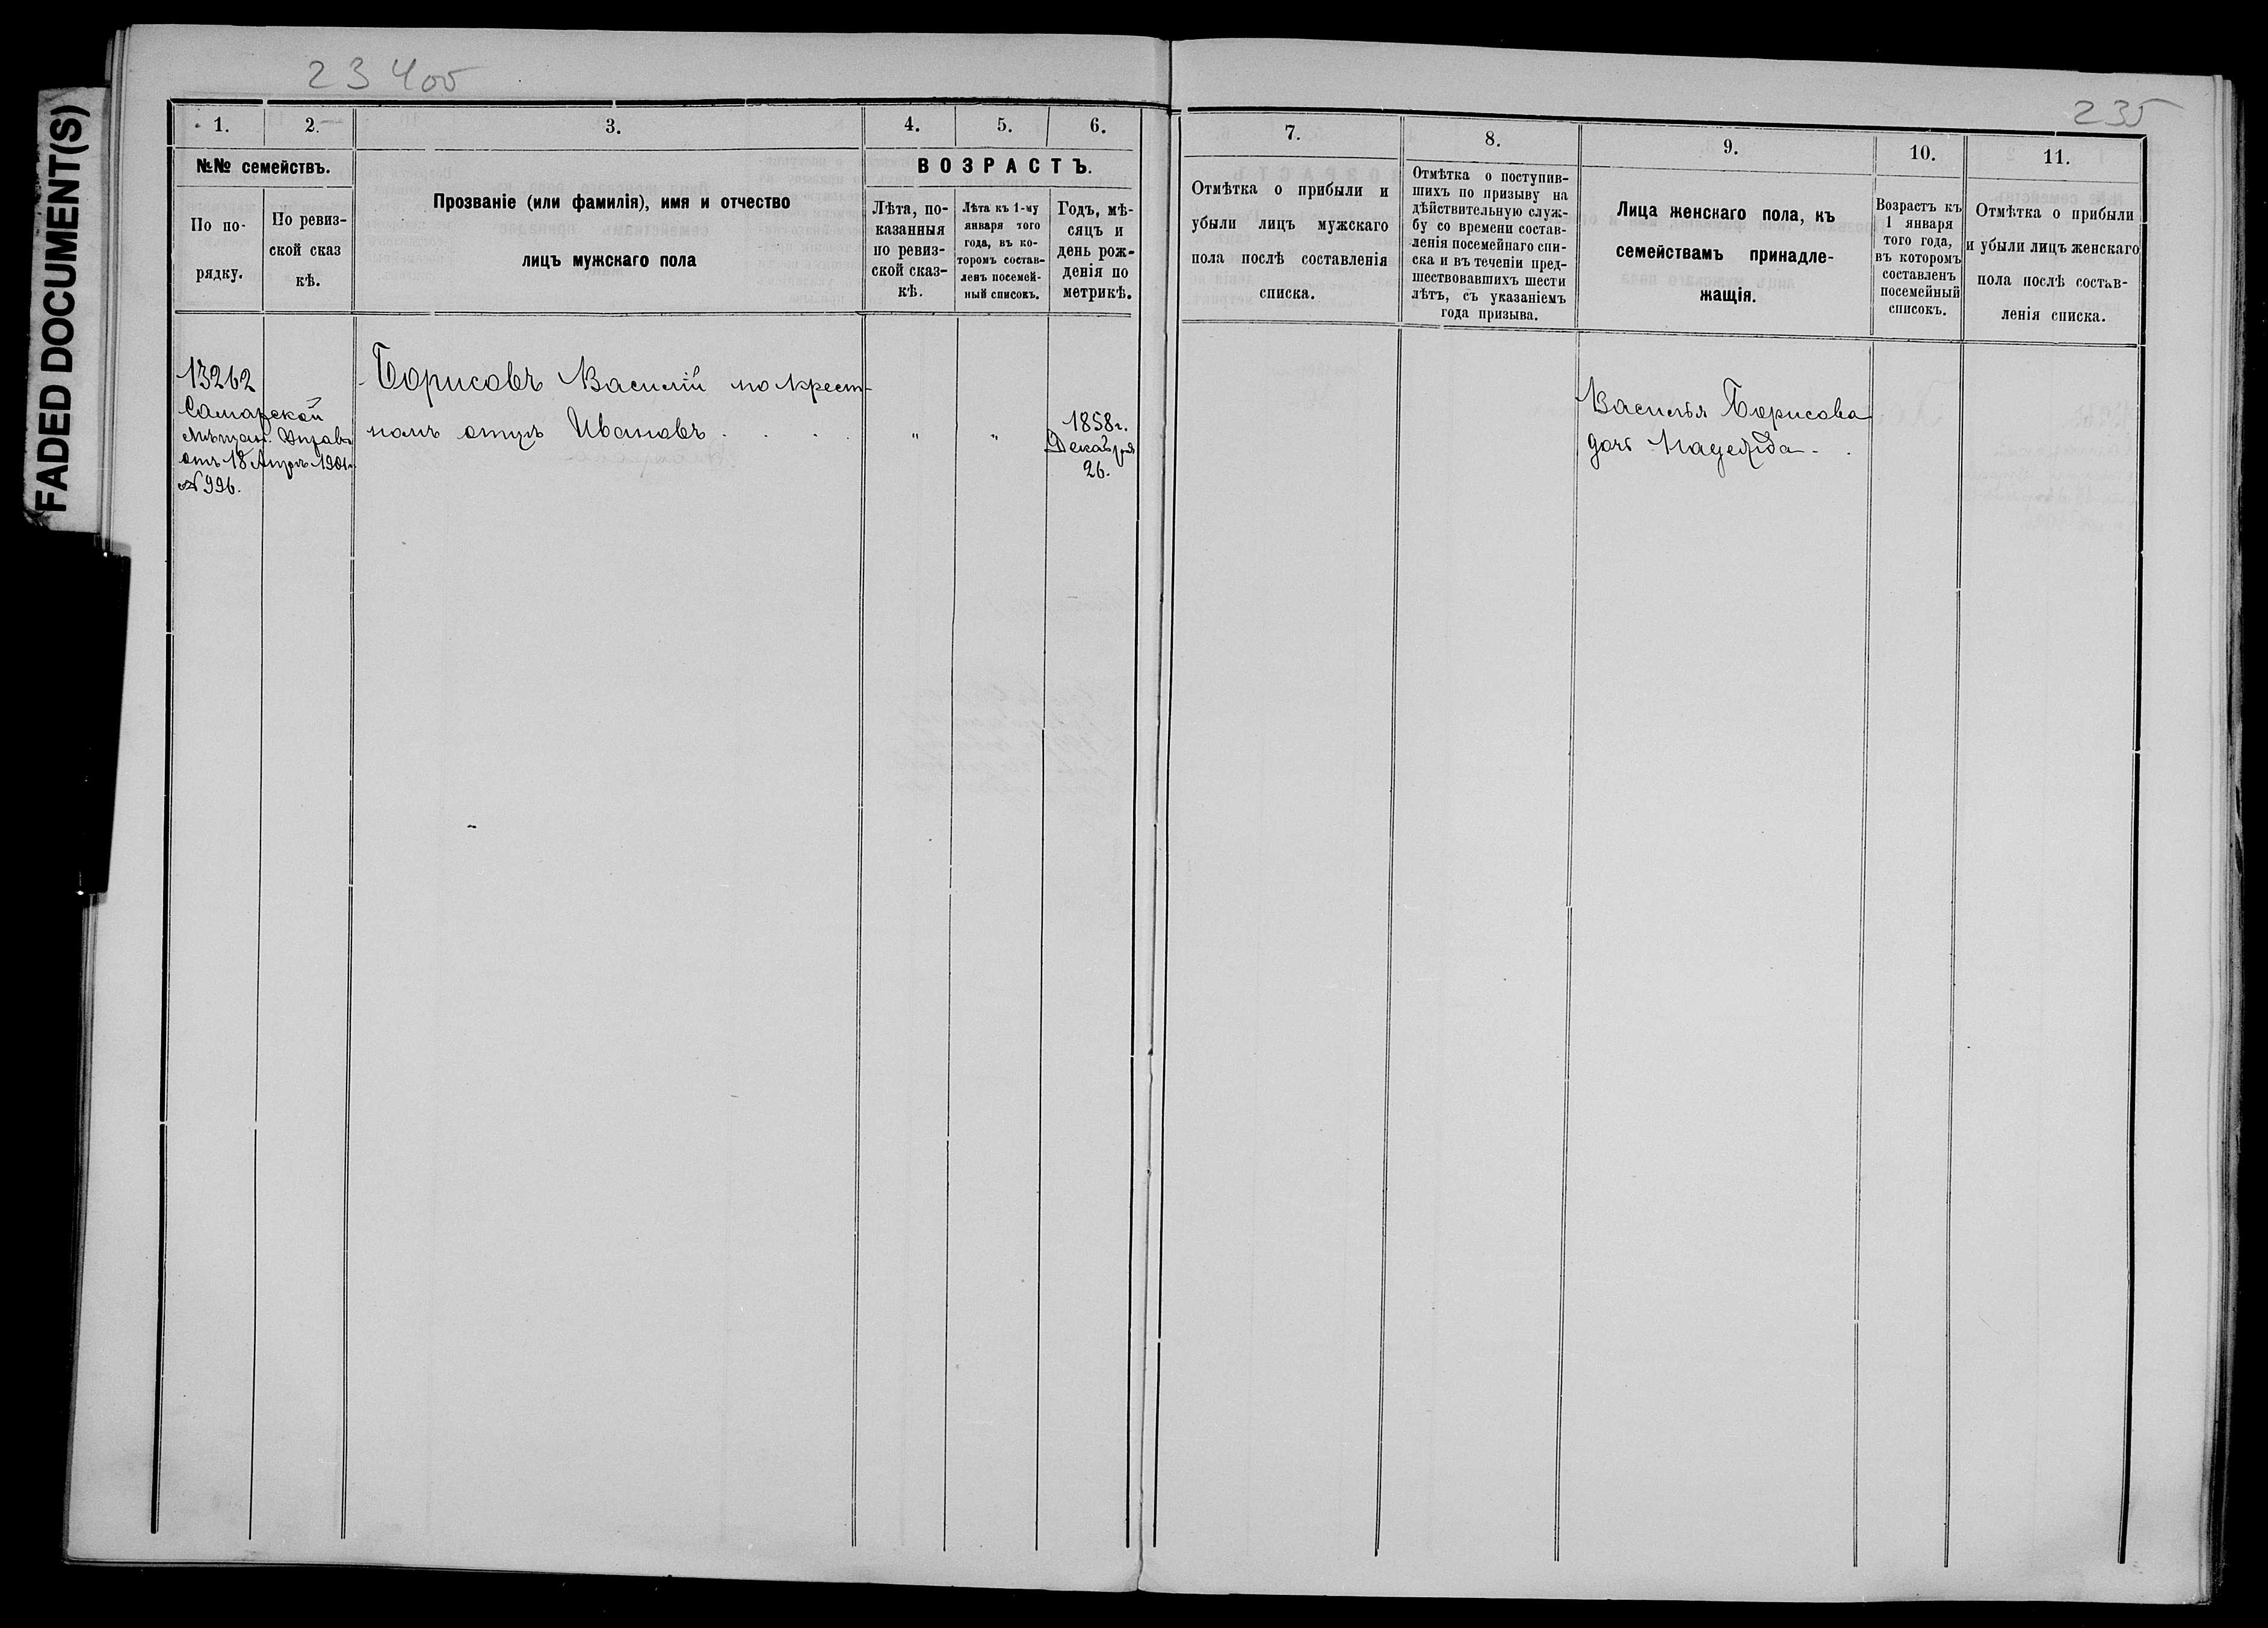 FADED DOCUMENT(S)
23400
235
1. 2. 3. 4. 5. 6.
№№ семействъ.
По по-
рядку.
По ревиз-
ской сказ
кѣ.
Прозваніе (или фамилія), имя и отчество
лицъ мужскаго пола
ВОЗРАСТЪ.
Лѣта, по-
казанныя
по ревиз-
ской сказ-
кѣ.
Лѣта къ 1-му
января того
года, въ ко-
торомъ состав-
ленъ посемей-
ный списокъ.
Годъ, мѣ-
сяцъ и
день рож-
денія по
метрикѣ.
7. 8. 9. 10. 11.
Отмѣтка о прибыли и
убыли лицъ мужскаго
пола послѣ составленія
списка.
Отмѣтка о поступив-
шихъ по призыву на
дѣйствительную служ-
бу со времени состав-
ленія посемейнаго спи-
ска и въ теченіи пред-
шествовавшихъ шести
лѣтъ, съ указаніемъ
года призыва.
Лица женскаго пола, къ
семействамъ принадле-
жащія.
Возрастъ къ
1 января
того года,
въ которомъ
составленъ
посемейный
списокъ.
Отмѣтка о прибыли
и убыли лицъ женскаго
пола послѣ состав-
ленія списка.
13262
Самарской
Мѣщан. Управы
отъ 18 Апрѣл 1901г.
№ 996.
Борисовъ Василій по крест-
номъ отцѣ Ивановъ . . .
" "
1858г.
Декабря
26.
Василья Борисова
дочь Надежда - .